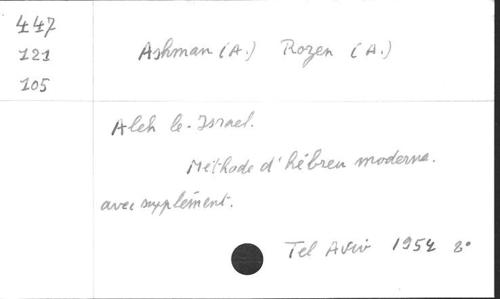 447
121
105
Ashman (A.) Rozen (A.)
Aleh le-Israel.
Méthode d'hébreu moderne.
avec supplément.
Tel Aviv 1954 8°